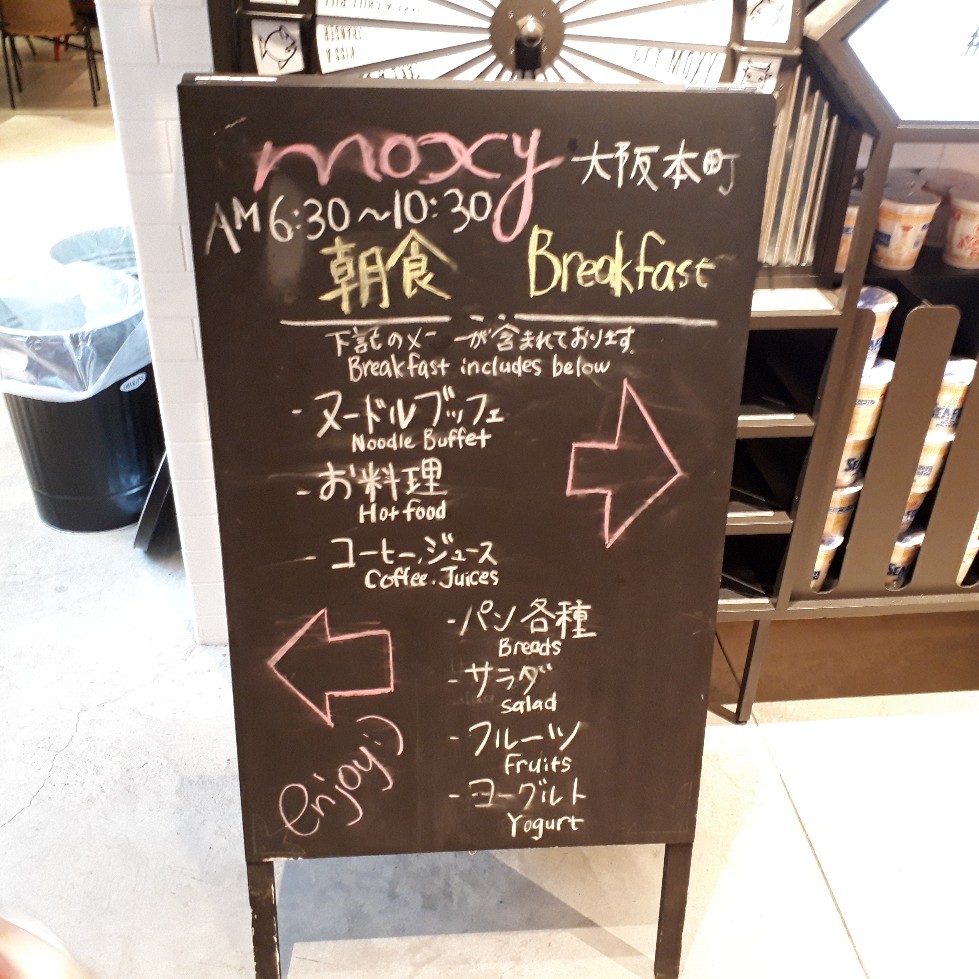 moxy 大阪本町
AM 6:30～10:30
朝食 Breakfast
下記のメー が含まれております。
Breakfast includes below
- ヌードルブッフェ
Noodle Buffet
- お料理
Hot food
- コーヒー、ジュース
Coffee. Juices
- パン各種
Breads
- サラダ
salad
- フルーツ
Fruits
- ヨーグルト
Yogurt
enjoy:)